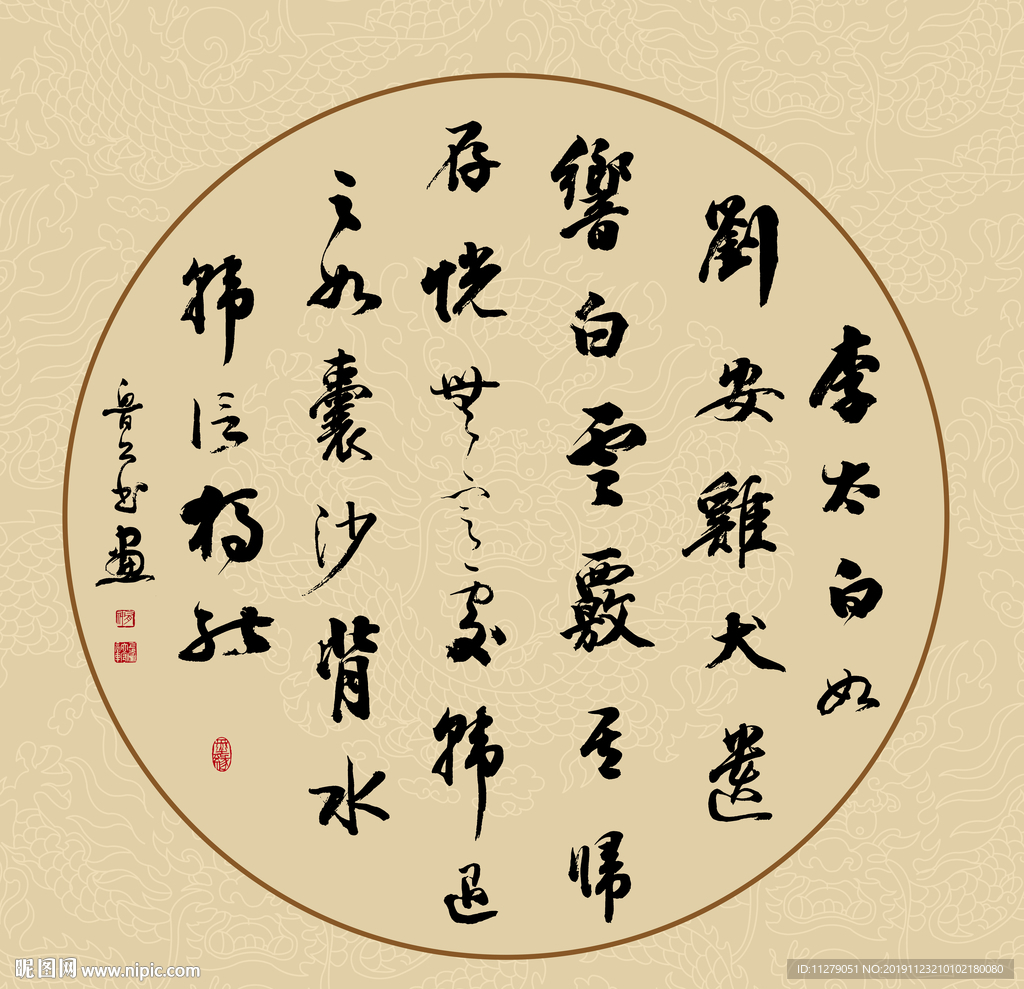 李太白如
劉安雞犬遺
響白雲覈其歸
存恍無定處韓退
之如囊沙背水
韓信獨能
晋公书畫
昵图网 www.nipic.com
ID:11279051 NO:20191123210102180080